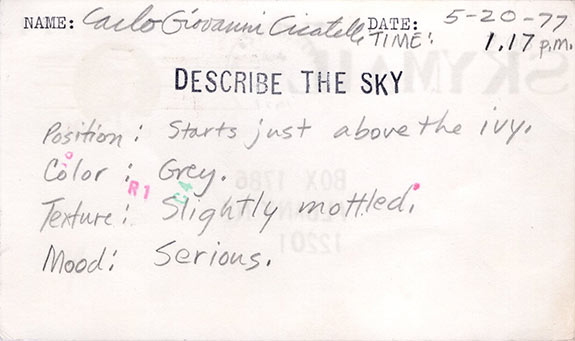 NAME: Carlo Giovanni Cicatelli DATE: 5-20-77
TIME: 1.17 p.m.
DESCRIBE THE SKY
Position: Starts just above the ivy.
Color: Grey.
R1 C4
Texture: Slightly mottled.
Mood: Serious.
SKYMAIL
BOX 1786
12201